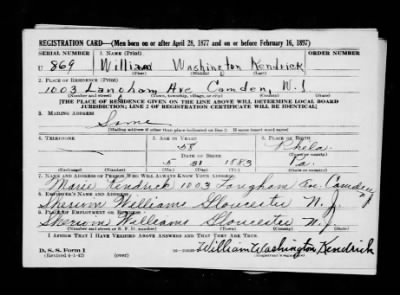 REGISTRATION CARD—(Men born on or after April 28, 1877 and on or before February 16, 1897)
SERIAL NUMBER 1. NAME (Print) ORDER NUMBER
U 869 William Washington Kendrick
(First) (Middle) (Last)
2. PLACE OF RESIDENCE (Print)
1003 Langham Ave Camden, N.J
(Number and street) (Town, township, village, or city) (County) (State)
[THE PLACE OF RESIDENCE GIVEN ON THE LINE ABOVE WILL DETERMINE LOCAL BOARD
JURISDICTION; LINE 2 OF REGISTRATION CERTIFICATE WILL BE IDENTICAL]
3. MAILING ADDRESS
Same
[Mailing address if other than place indicated on line 2. If same insert word same]
4. TELEPHONE 5. AGE IN YEARS 6. PLACE OF BIRTH
58 Phila
DATE OF BIRTH
5 31 1883 Pa.
7. NAME AND ADDRESS OF PERSON WHO WILL ALWAYS KNOW YOUR ADDRESS
Marie Kendrick 1003 Langham Ave. Camden NJ
8. EMPLOYER'S NAME AND ADDRESS
Sherwin Williams Gloucester N.J.
9. PLACE OF EMPLOYMENT OR BUSINESS
Sherwin Williams Gloucester N.J.
(Number and street or R. F. D. number) (Town) (County) (State)
I AFFIRM THAT I HAVE VERIFIED ABOVE ANSWERS AND THAT THEY ARE TRUE.
D. S. S. Form 1
(Revised 4-1-42) (over)
William Washington Kendrick